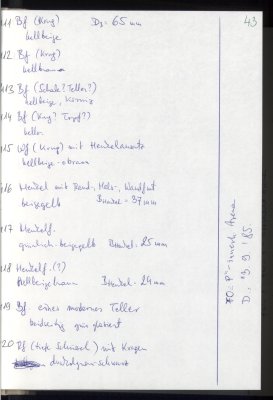 43
111 Bf (Krug) D₂ = 65 mm
hellbeige
112 Bf (Krug)
hellbraun
113 Bf (Schale? Teller?)
hellbeige, körnig
114 Bf (Krug? Topf?)
hellor
115 Wf (Krug) mit Henkelansatz
hellbeige-obraun
116 Henkel mit Rand-, Hals-, Wandfrgt
beigegelb B Henkel = 37 mm
117 Henkelf.
beigegelb B Henkel = 25 mm
118 Henkelf. (?)
Hellbeigebraun B Henkel = 24 mm
119 Bf. eines modernen Teller
beidseitig grün glasiert
120 Rf (tiefe Schüssel) mit Kragen
dunkelgrauschwarz
D: 13 9 185